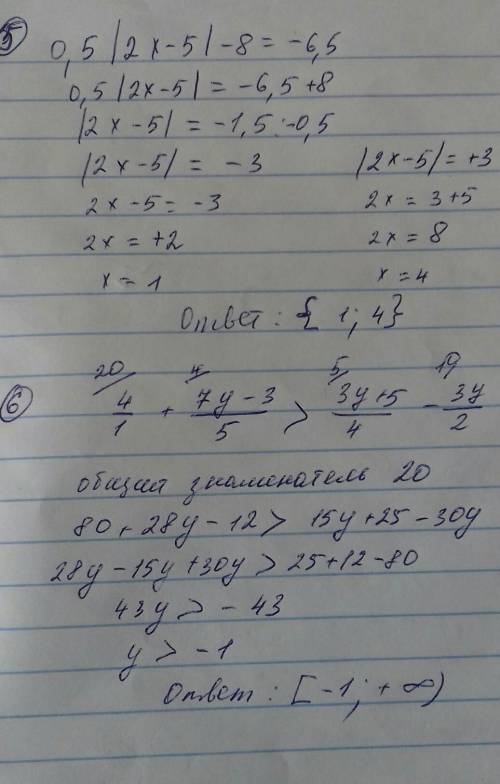 5
0,5 |2x-5| -8 = -6,5
0,5 |2x-5| = -6,5 +8
|2x-5| = -1,5 : -0,5
|2x-5| = -3 |2x-5| = +3
2x-5 = -3 2x = 3+5
2x = +2 2x = 8
x = 1 x = 4
Ответ : { 1; 4}
20 4 5 10
6 4/1 + (7y-3)/5 > (3y+5)/4 - 3y/2
общий знаменатель 20
80 + 28y - 12 > 15y + 25 - 30y
28y - 15y + 30y > 25 + 12 - 80
43y > -43
y > -1
Ответ : [ -1; + ∞)